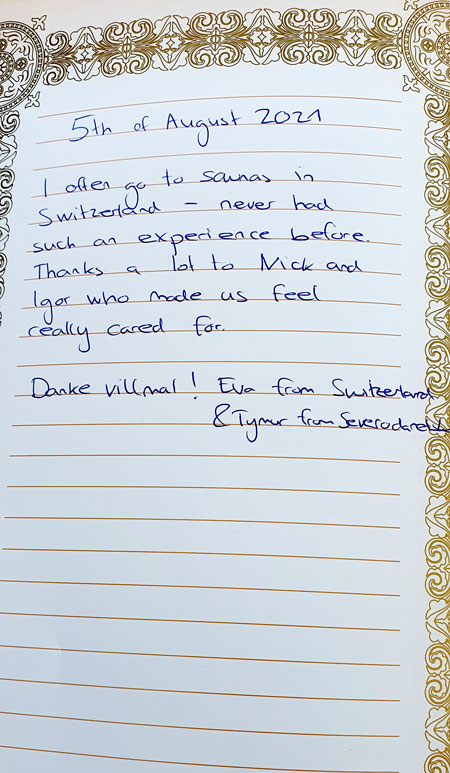 5th of August 2021
I often go to saunas in
Switzerland – never had
such an experience before.
Thanks a lot to Nick and
Igor who made us feel
really cared for.
Danke villmal! Eva from Switzerland
& Tymur from